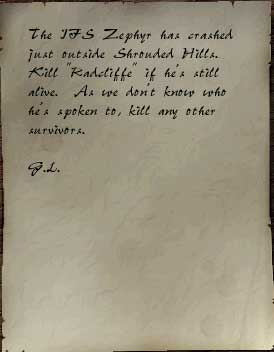 The IFS Zephyr has crashed
just outside Shrouded Hills.
Kill "Radcliffe" if he's still
alive. As we don't know who
he's spoken to, kill any other
survivors.
G.L.